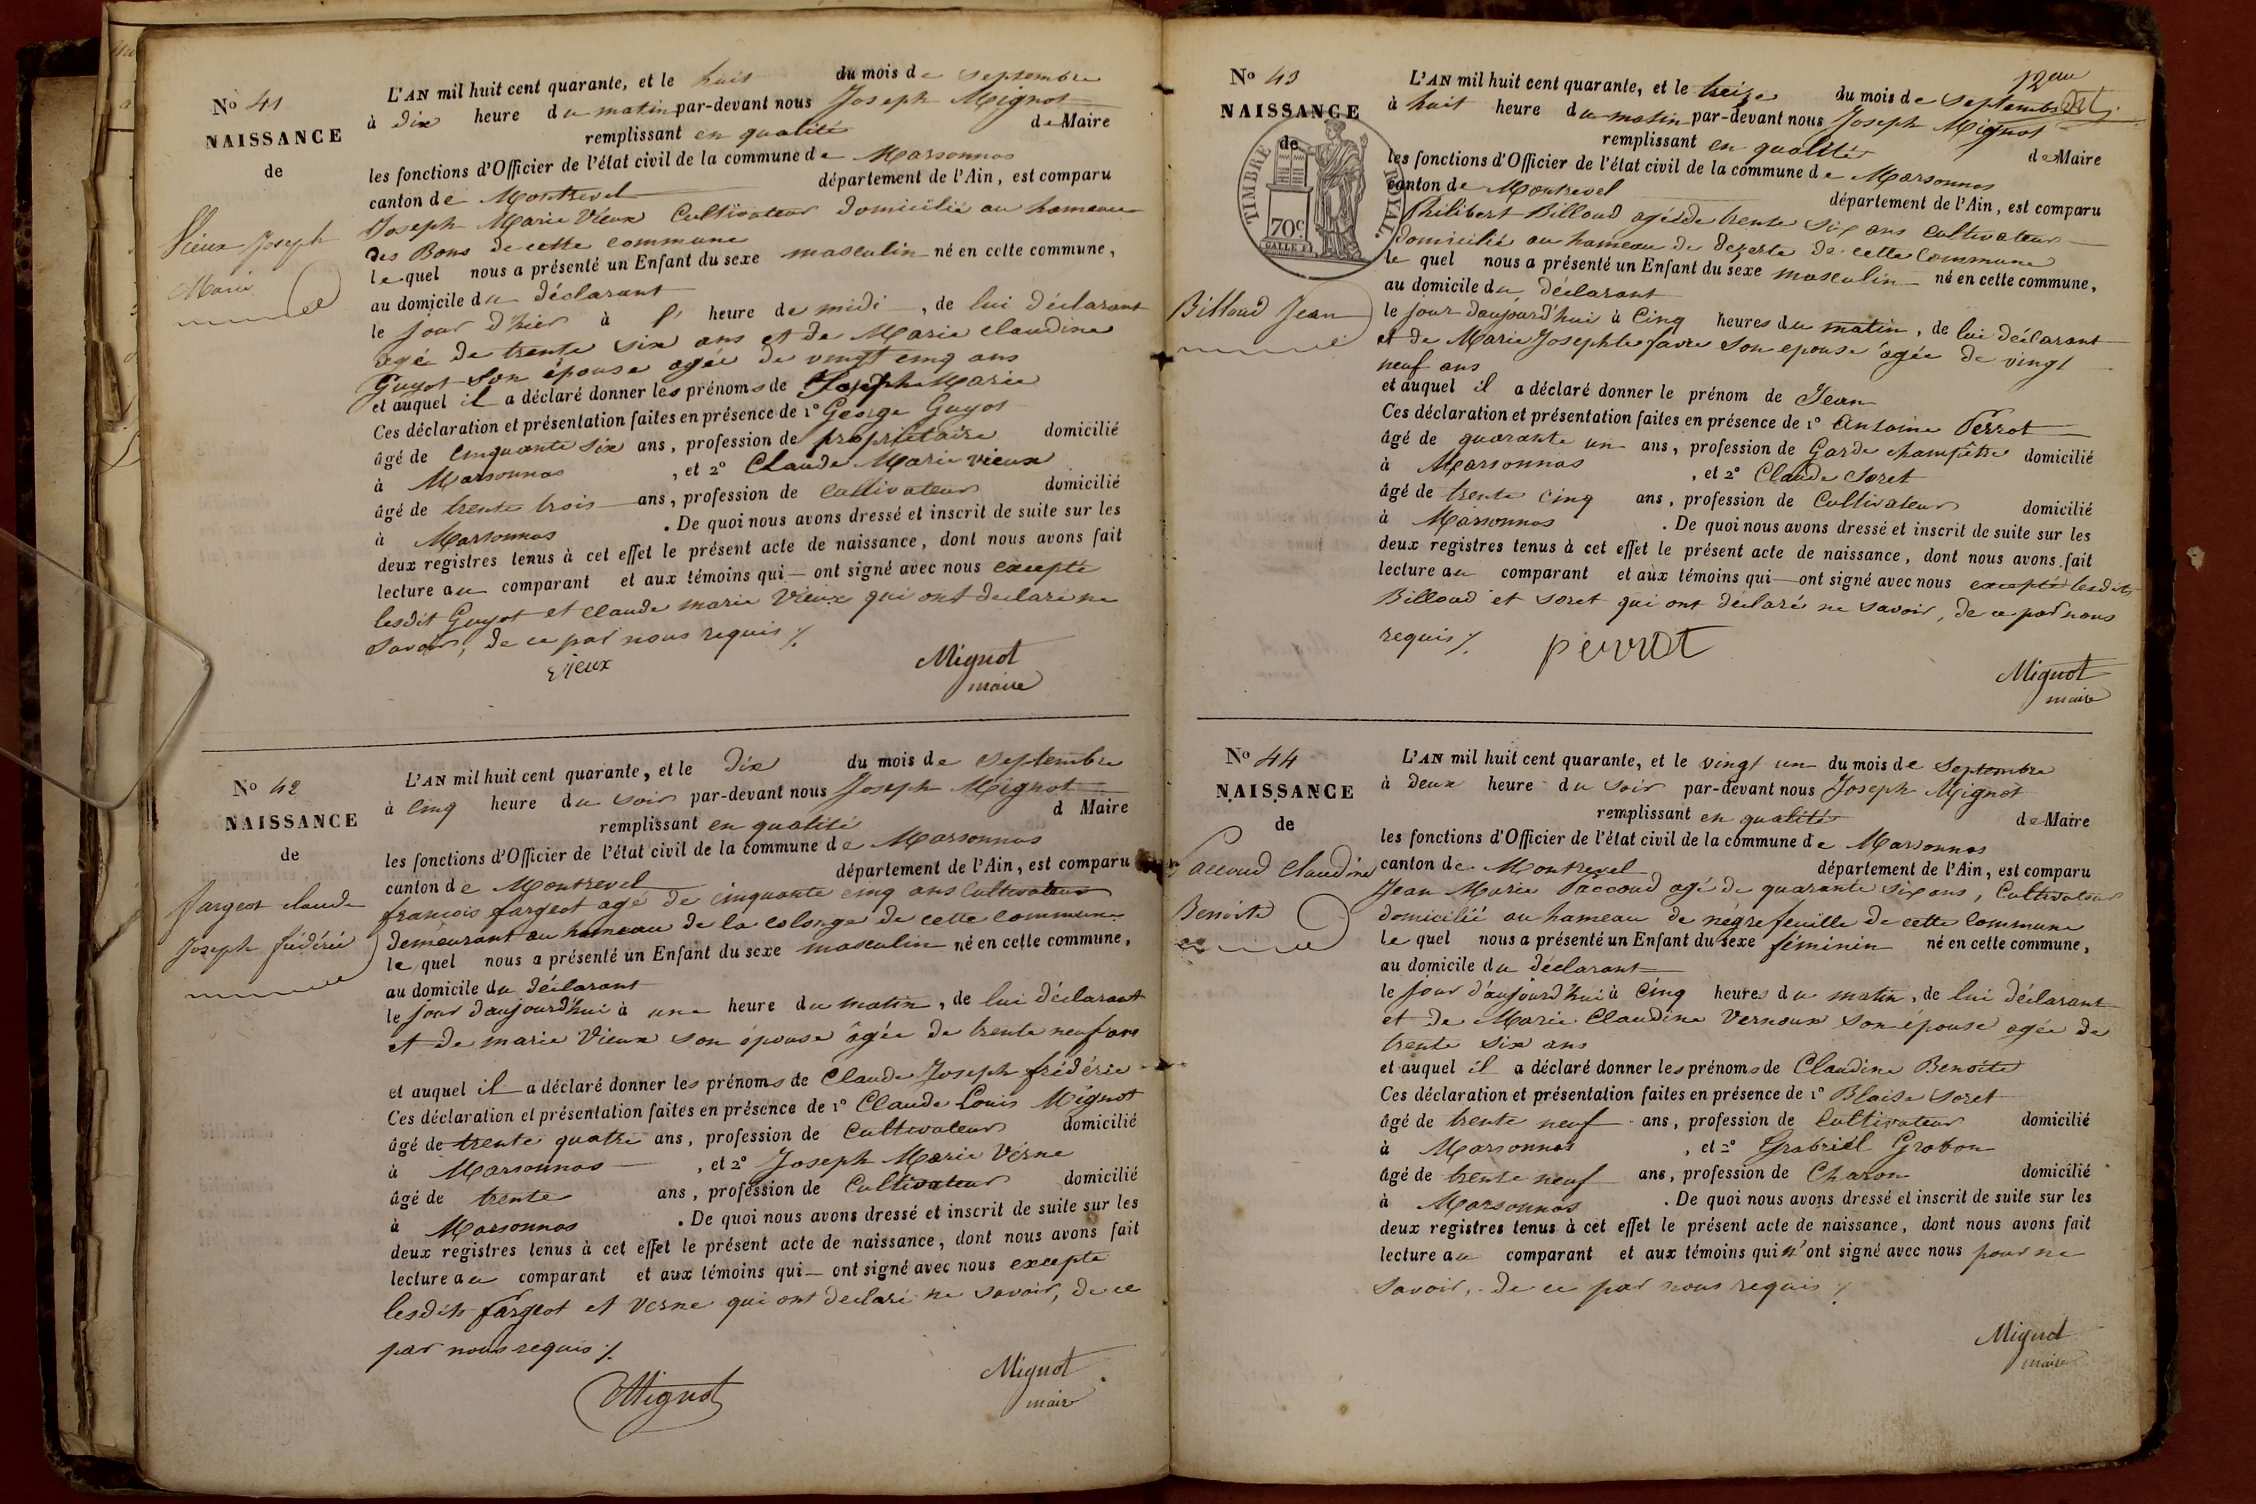 N° 41
NAISSANCE
de
Vieux Joseph
Marie
L'AN mil huit cent quarante, et le huit du mois de septembre
à dix heure du matin par-devant nous Joseph Mignot
remplissant en qualité de Maire
les fonctions d'Officier de l'état civil de la commune de Marsonnas
canton de Montrevel département de l'Ain, est comparu
Joseph Marie Vieux Cultivateur domicilié au hameau
des Bons de cette commune
le quel nous a présenté un Enfant du sexe masculin né en cette commune,
au domicile du déclarant
le jour d'hier à heure de midi, de lui déclarant
agé de trente six ans et de Marie Claudine
Guyot son épouse agée de vingt cinq ans
et auquel il a déclaré donner les prénoms de Joseph Marie
Ces déclaration et présentation faites en présence de 1° George Guyot
âgé de cinquante six ans, profession de propriétaire domicilié
à Marsonnas, et 2° Claude Marie vieux
âgé de trente trois ans, profession de cultivateur domicilié
à Marsonnas. De quoi nous avons dressé et inscrit de suite sur les
deux registres tenus à cet effet le présent acte de naissance, dont nous avons fait
lecture au comparant et aux témoins qui — ont signé avec nous excepté
lesdit Guyot et Claude marie Vieux qui ont declaré ne
savoir, de ce par nous requis ⁒
vieux
Mignot
maire
N° 42
NAISSANCE
de
fargeot claude
Joseph frédéric
L'AN mil huit cent quarante, et le dix du mois de septembre
à cinq heure du soir par-devant nous Joseph Mignot
remplissant en qualité d Maire
les fonctions d'Officier de l'état civil de la commune de Marsonnas
canton de Montrevel département de l'Ain, est comparu
francois fargeot agé de cinquante cinq ans Cultivateur
demeurant au hameau de la colonge de cette commune
le quel nous a présenté un Enfant du sexe masculin né en cette commune,
au domicile du déclarant
le jour d'aujourd'hui à une heure du matin, de lui déclarant
et de marie Vieux son épouse âgée de trente neuf ans
et auquel il a déclaré donner les prénoms de Claude Joseph frédéric
Ces déclaration et présentation faites en présence de 1° Claude Louis Mignot
âgé de trente quatre ans, profession de Cultivateur domicilié
à Marsonnas, et 2° Joseph Marie Verne
âgé de trente ans, profession de Cultivateur domicilié
à Marsonnas. De quoi nous avons dressé et inscrit de suite sur les
deux registres tenus à cet effet le présent acte de naissance, dont nous avons fait
lecture au comparant et aux témoins qui — ont signé avec nous excepte
lesdits fargeot et Verne qui ont declaré ne savoir, de ce
par nous requis ⁒
Mignot
Mignot
maire
N° 43
NAISSANCE
de
TIMBRE ROYAL.
70c
Billoud Jean
L'AN mil huit cent quarante, et le treize du mois de septembre
à huit heure du matin par-devant nous Joseph Mignot
remplissant en qualité de Maire
les fonctions d'Officier de l'état civil de la commune de Marsonnas
canton de Montrevel département de l'Ain, est comparu
Philibert Billoud agé de trente six ans cultivateur
domicilié au hameau de dezerte de cette Commune
le quel nous a présenté un Enfant du sexe masculin né en cette commune,
au domicile du déclarant
le jour daujourd'hui à Cinq heures du matin, de lui déclarant
et de Marie Josephte favre son epouse agée de vingt
neuf ans
et auquel il a déclaré donner le prénom de Jean
Ces déclaration et présentation faites en présence de 1° Antoine Perrot
âgé de quarante un ans, profession de Garde champêtre domicilié
à Marsonnas, et 2° Claude Soret
âgé de trente cinq ans, profession de Cultivateur domicilié
à Marsonnas. De quoi nous avons dressé et inscrit de suite sur les
deux registres tenus à cet effet le présent acte de naissance, dont nous avons fait
lecture au comparant et aux témoins qui — ont signé avec nous excepté lesdits
Billoud et soret qui ont déclaré ne savoir, de ce par nous
requis ⁒
perrot
Mignot
maire
N° 44
NAISSANCE
de
Paccoud Claudine
Benoite
L'AN mil huit cent quarante, et le vingt un du mois de Septembre
à deux heure du soir par-devant nous Joseph Mignot
remplissant en qualité de Maire
les fonctions d'Officier de l'état civil de la commune de Marsonnas
canton de Montrevel département de l'Ain, est comparu
Jean Marie Paccoud agé de quarante six ans, Cultivateur
domicilié au hameau de négrefeuille de cette Commune
le quel nous a présenté un Enfant du sexe féminin né en cette commune,
au domicile du déclarant
le jour d'aujourd'hui à Cinq heures du matin, de lui déclarant
et de Marie Claudine Vernoux son épouse agée de
trente six ans
et auquel il a déclaré donner les prénoms de Claudine Benoite
Ces déclaration et présentation faites en présence de 1° Blaise Soret
âgé de trente neuf ans, profession de Cultivateur domicilié
à Marsonnas, et 2° Grabriel Grabon
âgé de trente neuf ans, profession de Charon domicilié
à Marsonnas. De quoi nous avons dressé et inscrit de suite sur les
deux registres tenus à cet effet le présent acte de naissance, dont nous avons fait
lecture au comparant et aux témoins qui n'ont signé avec nous pour ne
savoir, de ce par nous requis ⁒
Mignot
maire